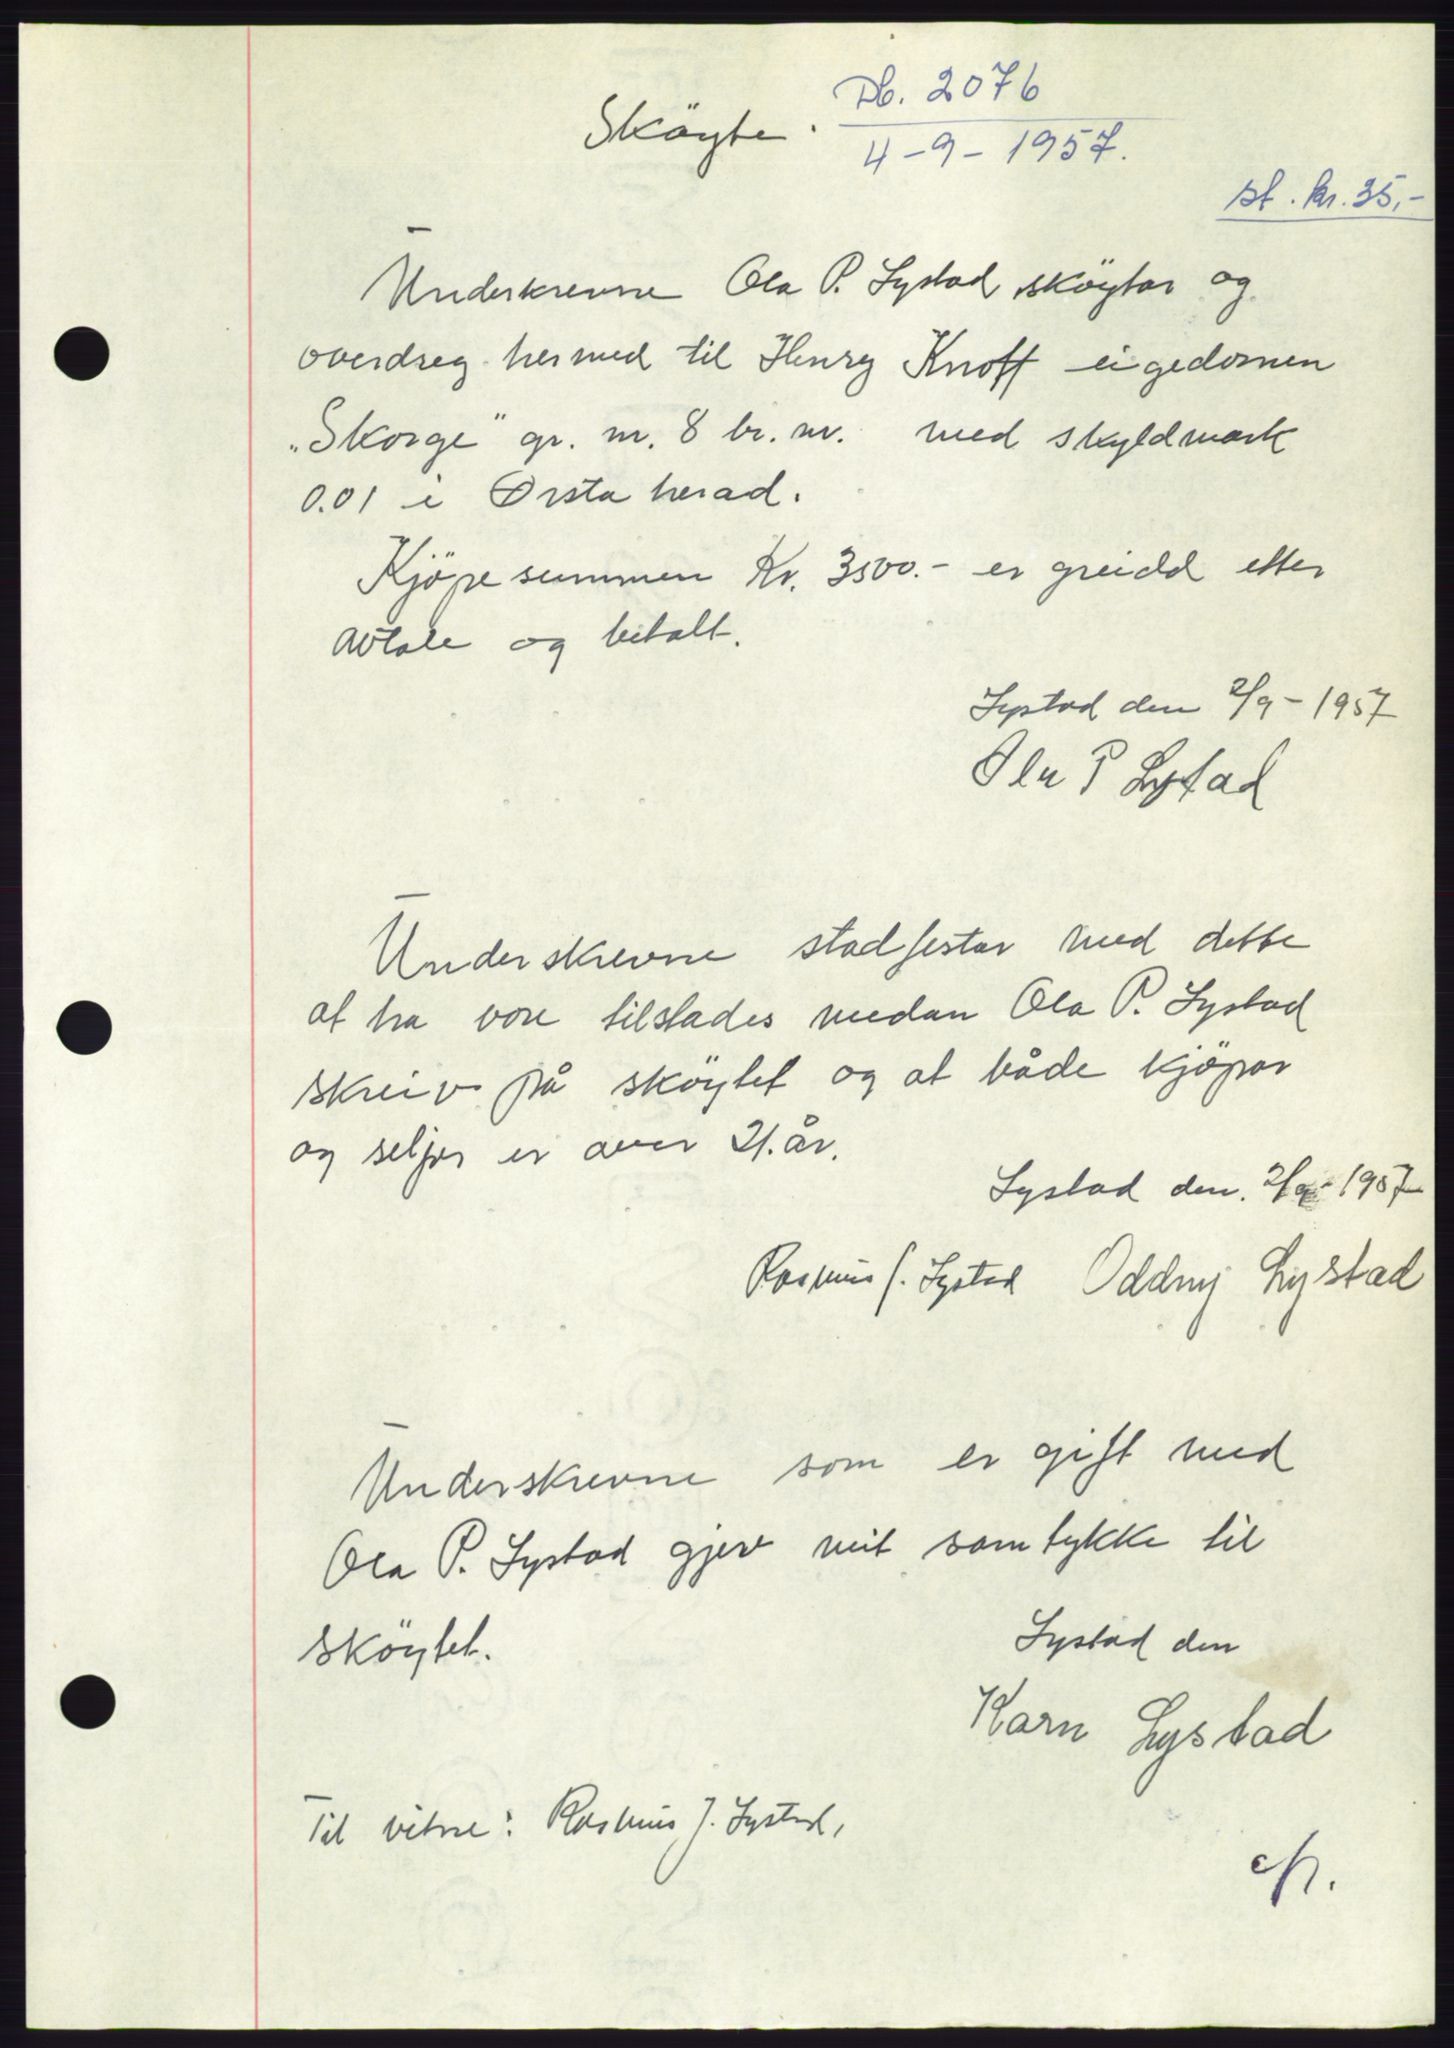 Sköyte. Db. 2076
4-9-1957.
st. kr. 35,-
Underkrevne Ola P. Lystad sköytar og
overdreg hermed til Henry Knoff eigedomen
"Skorge" gr. nr. 8 br. nr. med skyldmark
0.01 i Ørsta herad.
Kjöpesummen Kr. 3500.- er greidd etter
avtale og betalt.
Lystad den 2/9-1957
Ola P Lystad
Underskrevne stadfestar med dette
at ha vore tilstades medan Ola P. Lystad
skreiv på sköytet og at både kjöpar
og seljar er over 21. år.
Lystad den. 2/9-1957
Rasmus J. Lystad Oddny Lystad
Underskrevne som er gift med
Ola P. Lystad gjev mit samtykke til
sköytet.
Lystad den
Karn Lystad
Til vitne: Rasmus J. Lystad,